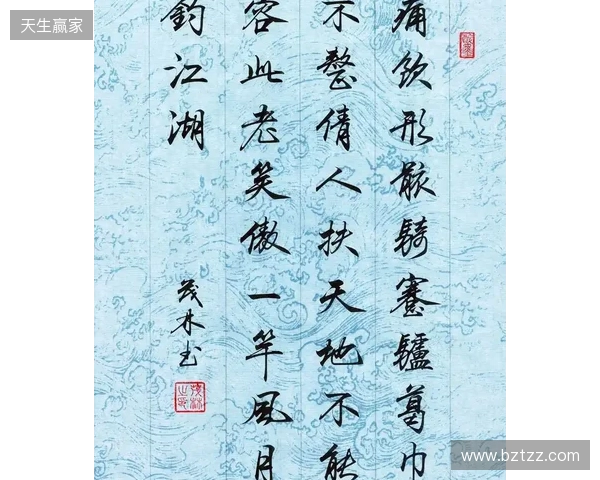 天生赢家
痛饮形骸騎蹇驢葛巾
不整倩人扶天地不能
容此老笑傲一竿風月
釣江湖
茂林书
www.bztzz.com